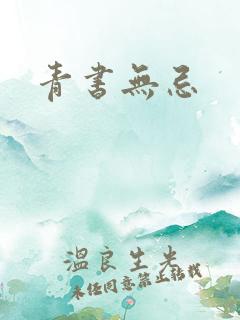 青書無忌
溫良生米
未经同意禁止转载